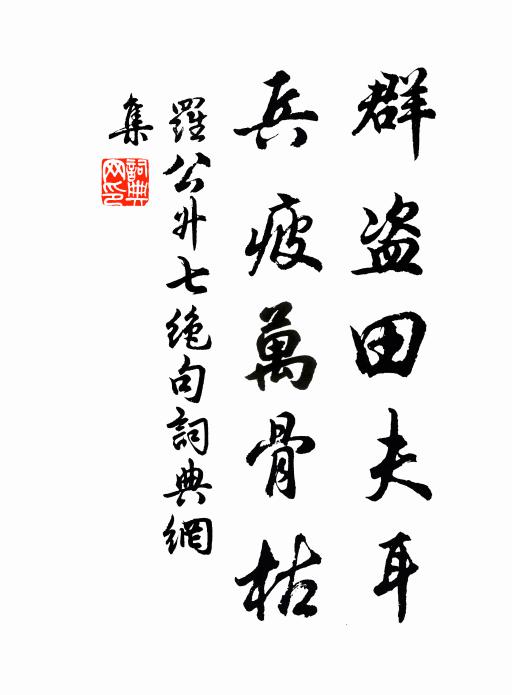 群盗田夫耳
兵疲萬骨枯
羅公升七絶句詞典網
集
詞典網印